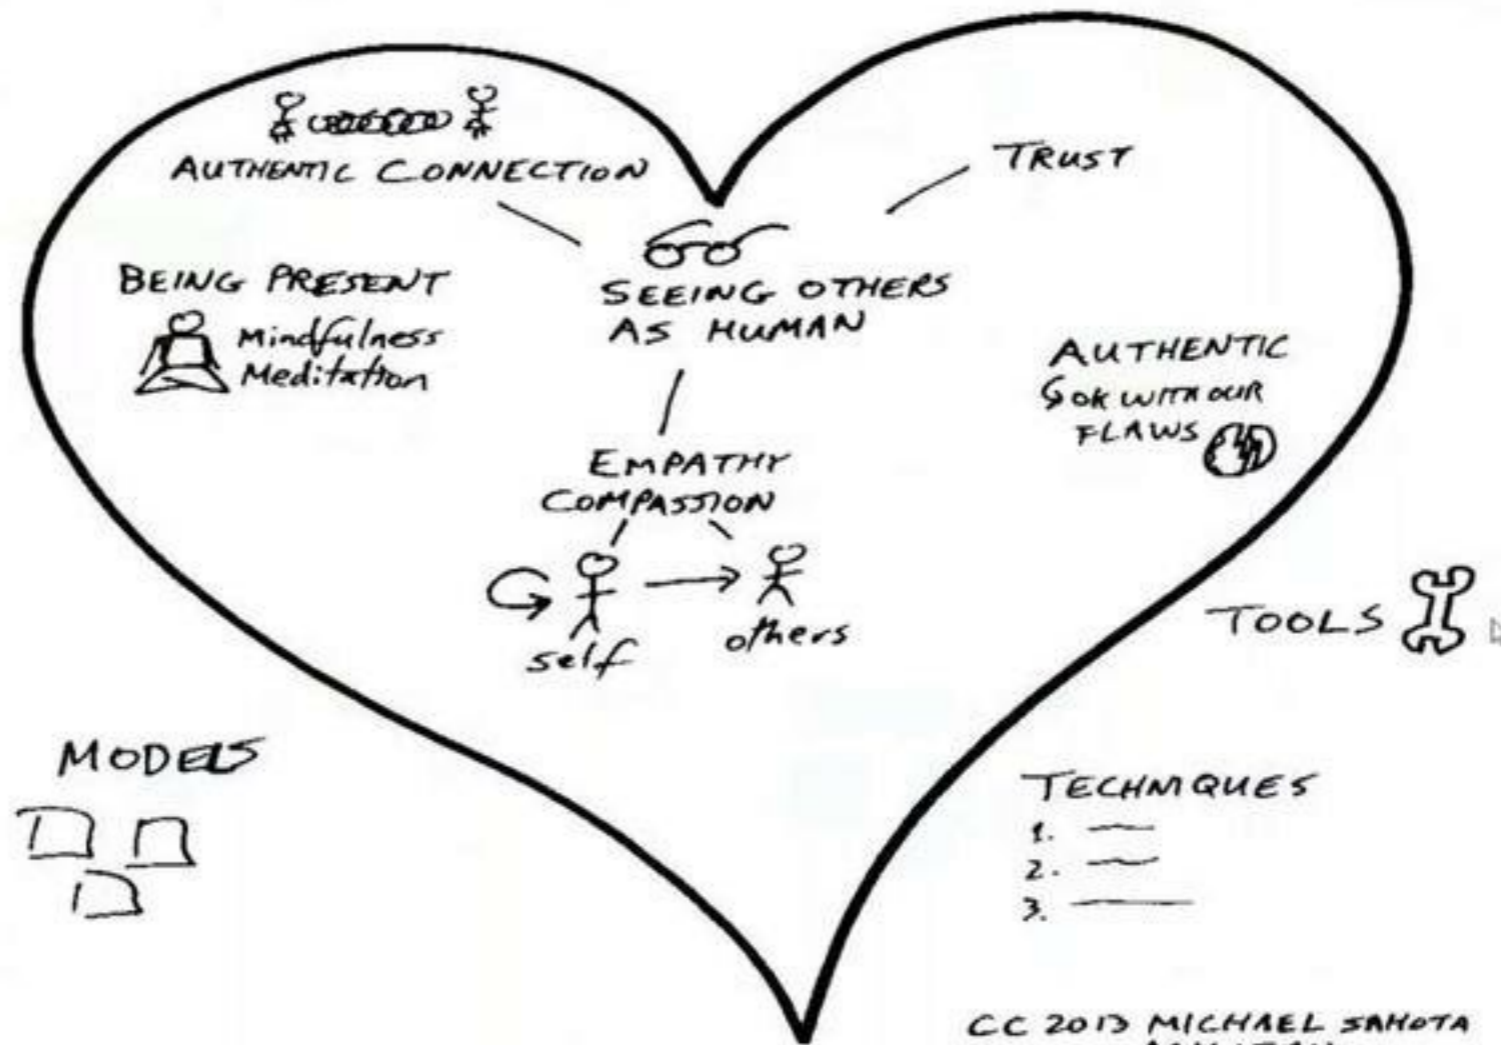 AUTHENTIC CONNECTION
TRUST
BEING PRESENT
Mindfulness
Meditation
SEEING OTHERS
AS HUMAN
AUTHENTIC
OK WITH OUR
FLAWS
EMPATHY
COMPASSION
self
others
TOOLS
MODELS
TECHNIQUES
1.
2.
3.
CC 2013 MICHAEL SAHOTA